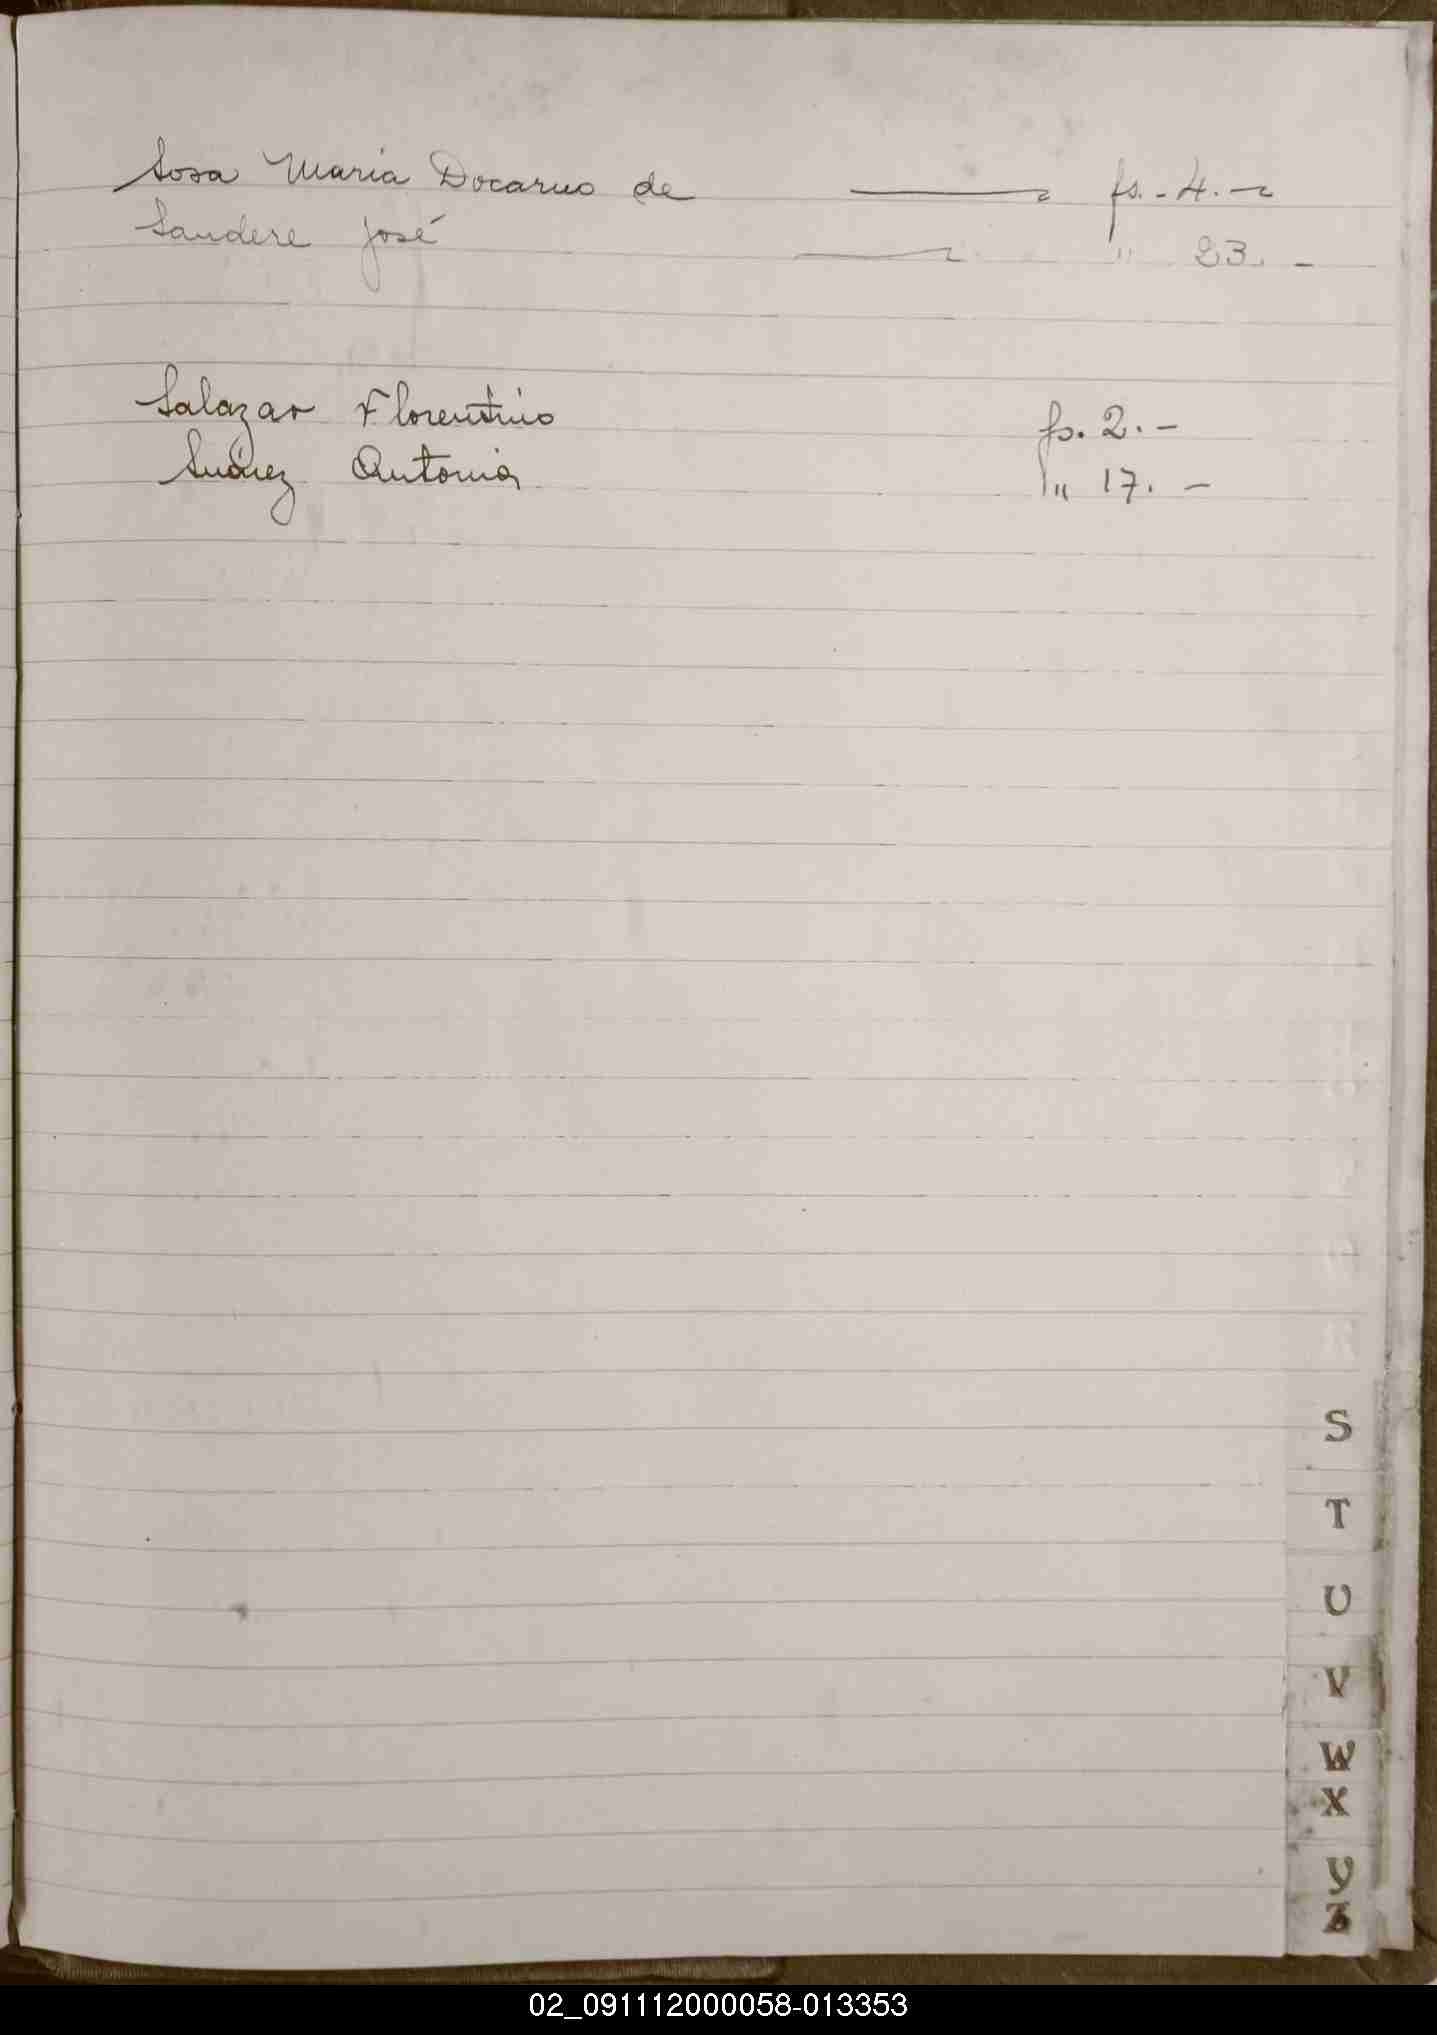 Sosa Maria Docarmo de — fs. - 4. -
Sandere José — " 23. -
Salazar Florentino fs. 2. -
Suárez Antonia " 17. -
S
T
U
V
W
X
Y
Z
02_091112000058-013353